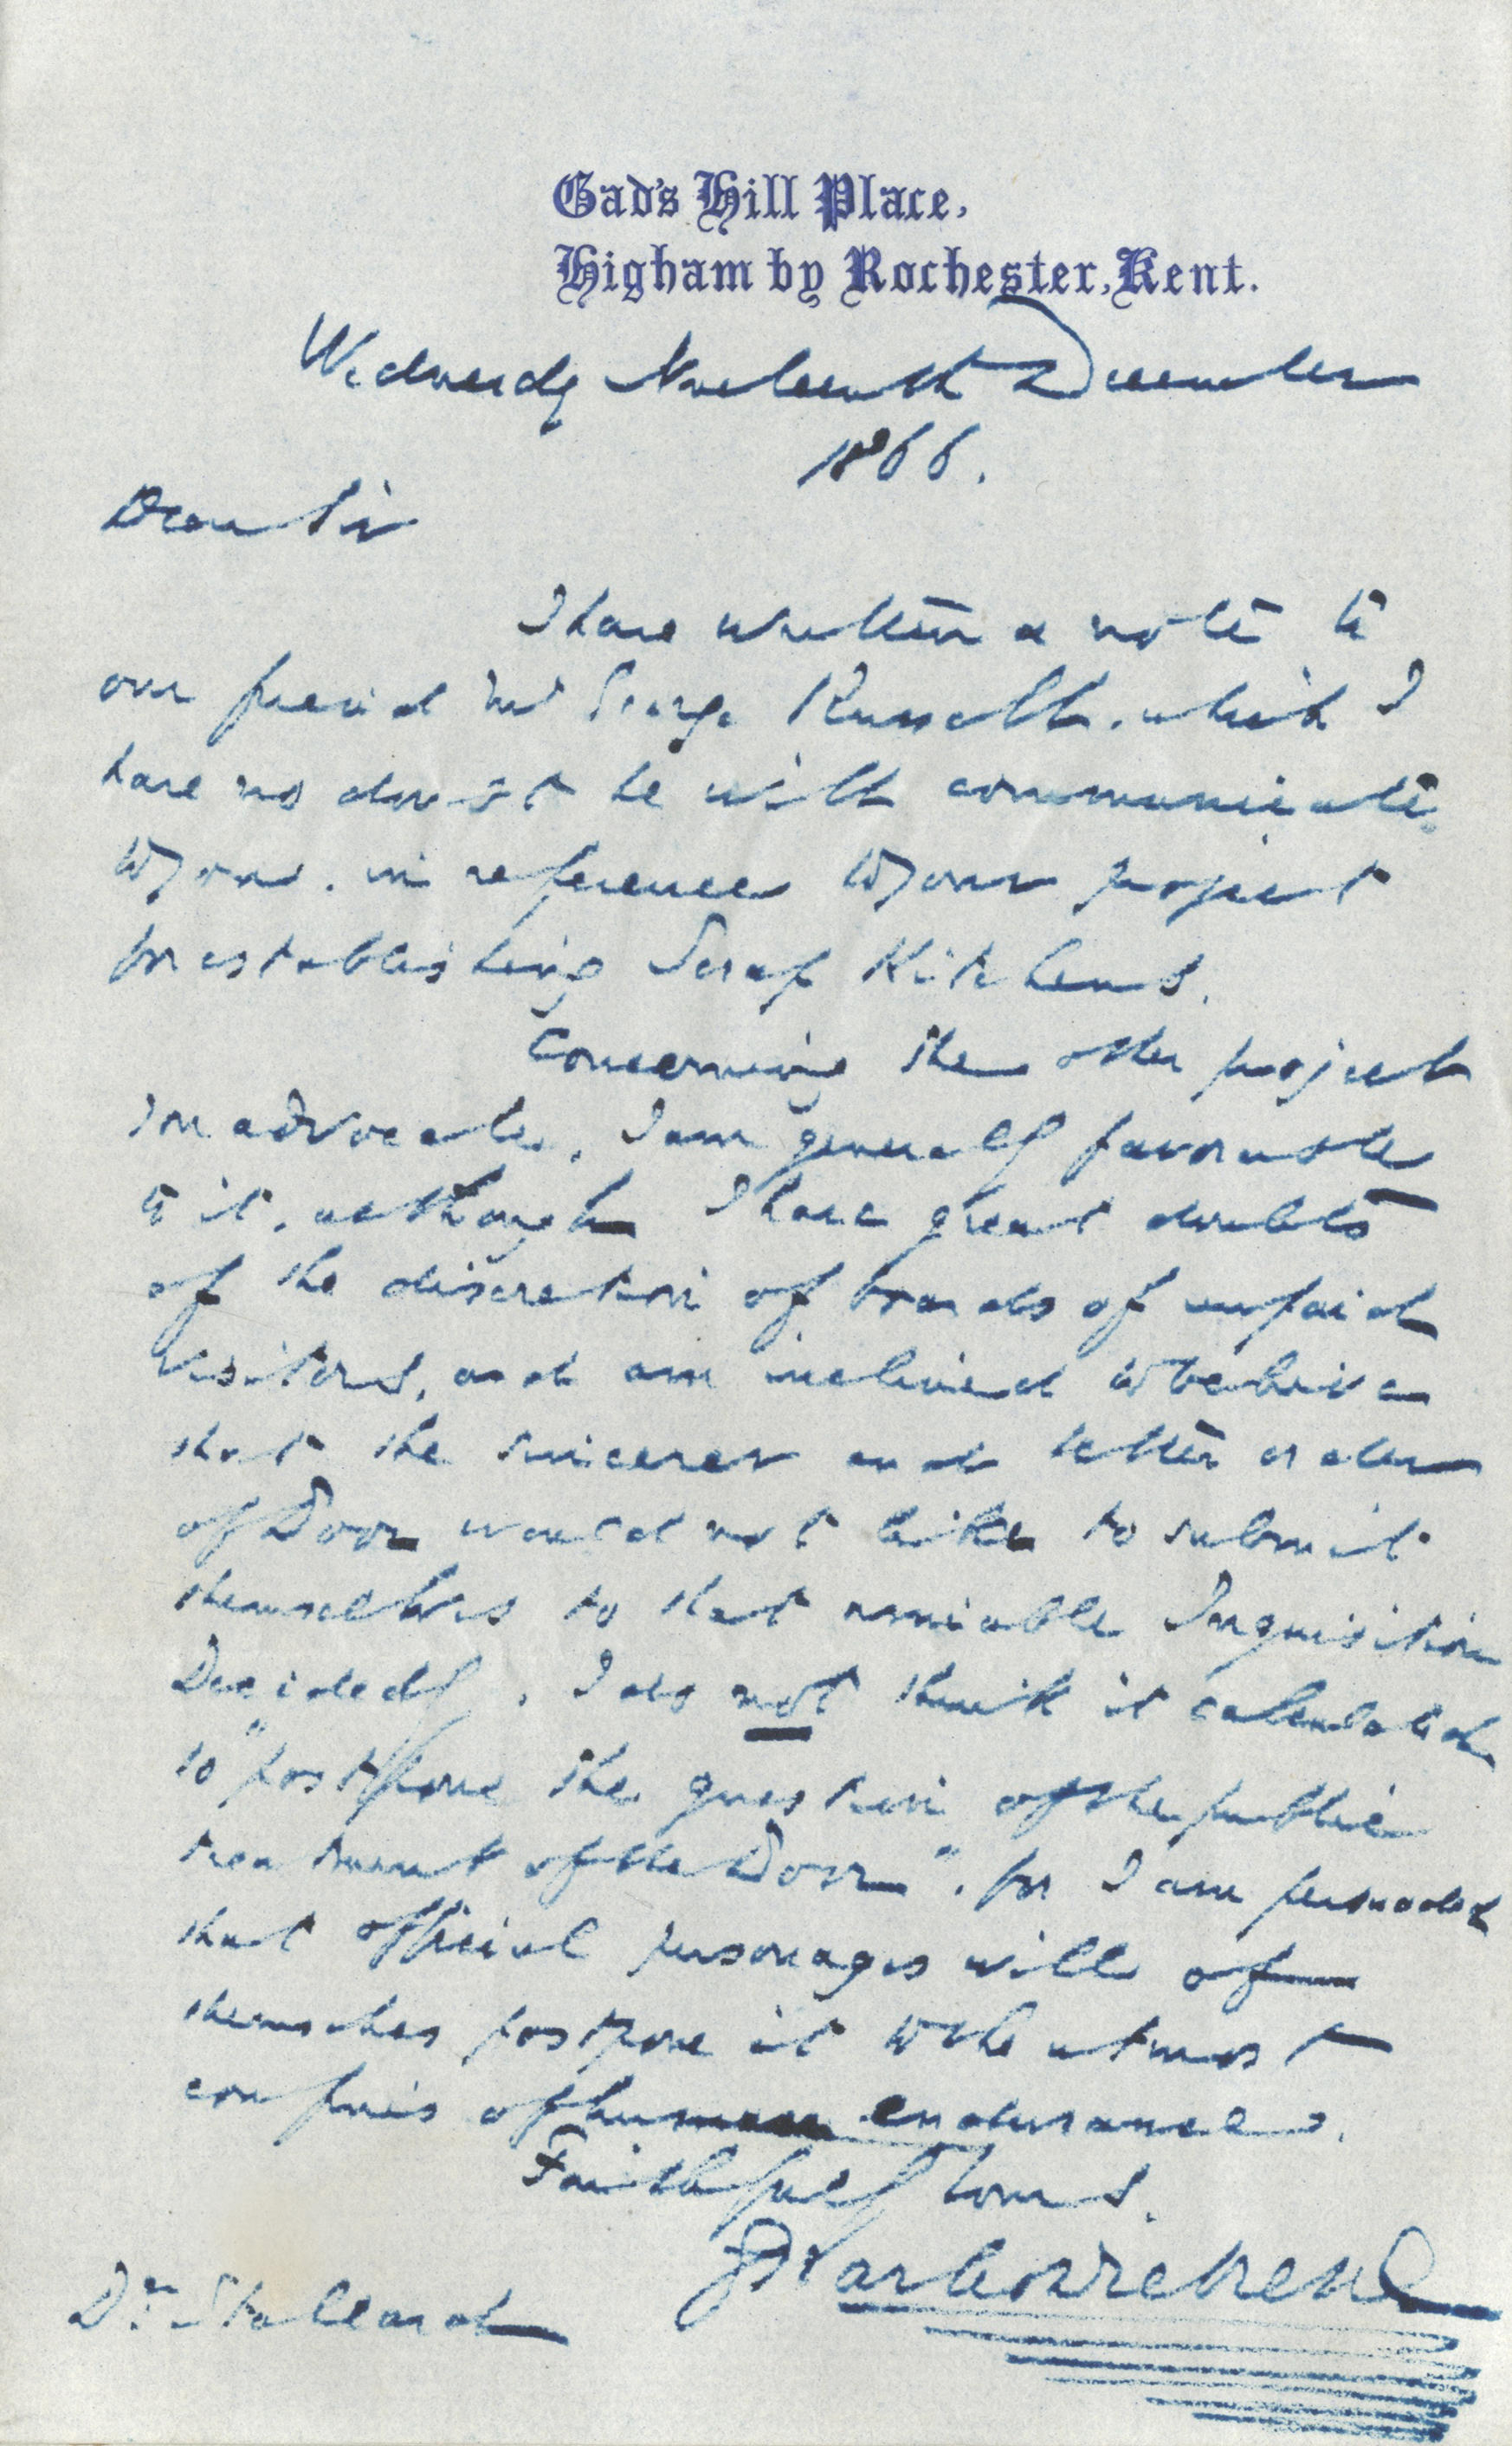 Gad's Hill Place,
Higham by Rochester, Kent.
Wednesday Nineteenth December
1866.
Dear Sir
I have written a note to
our friend Mr George Russell, which I
have no doubt he will communicate
to you, in reference to your project
for establishing Scrap Kitchens.
Concerning the other project
you advocate, I am generally favorable
to it, although I have great doubts
of the discretion of boards of unpaid
visitors, and am inclined to believe
that the sincerer and better order
of Poor would not like to submit
themselves to that amiable Inquisition
Decidedly, I do not think it calculated
to "postpone the question of the public
treatment of the Poor", for I am persuaded
that official personages will of
themselves postpone it to the utmost
confines of human endurance.
Faithfully Yours,
Charles Dickens
Dr. Stallard